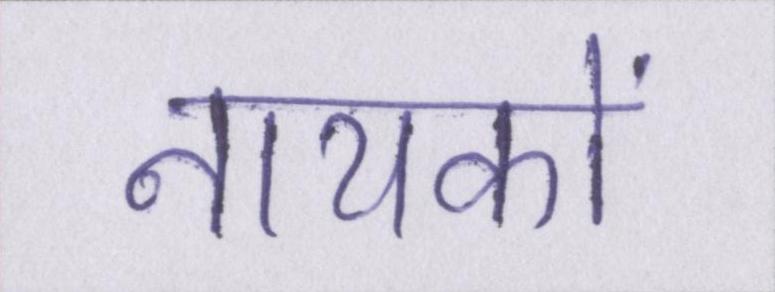 नायकों